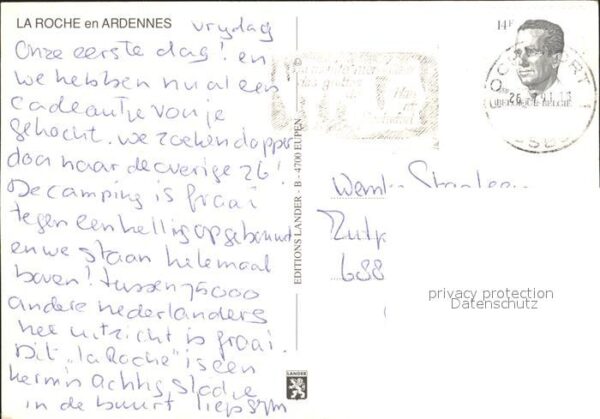 LA ROCHE en ARDENNES
vrijdag
Onze eerste dag! en
we hebben nu al een
cadeautje voor je
gekocht. we zoeken dapper
door naar de overige 26!
De camping is fraai
tegen een helling opgebouwd
en we staan helemaal
boven! tussen 75000
andere nederlanders
het uitzicht is fraai.
Dit "la Roche" is een
stadje
in de buurt liefs
EDITIONS LANDER - B - 4700 EUPEN
LANDER
14F
BELGIQUE-BELGIE
ROCHEFORT
26
13
688
privacy protection
Datenschutz